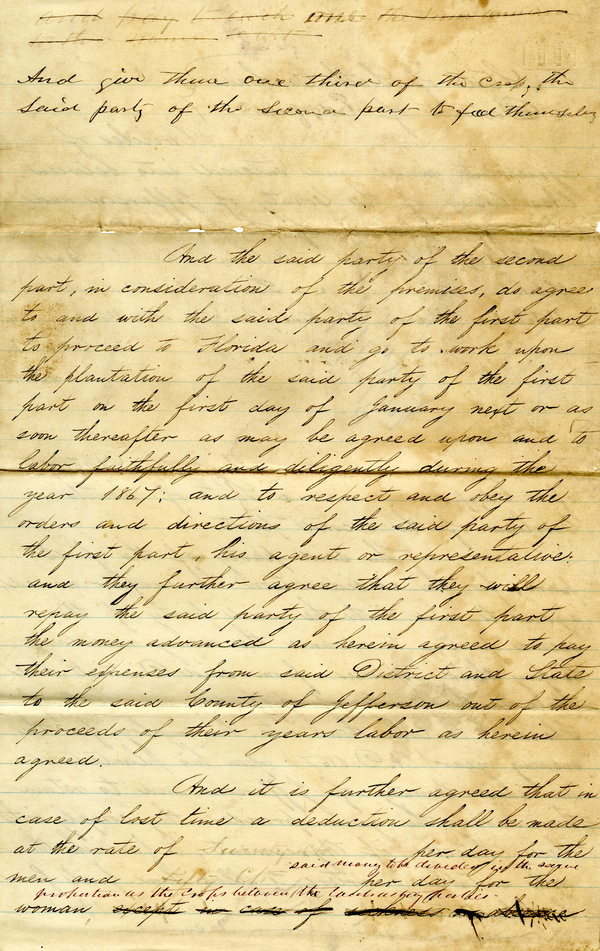 And give them one third of the crop, the
said party of the second part to feed themselves
And the said party of the second
part, in consideration of the premises, do agree
to and with the said party of the first part
to proceed to Florida and go to work upon
the plantation of the said party of the first
part on the first day of January next or as
soon thereafter as may be agreed upon and to
labor faithfully and diligently during the
year 1867; and to respect and obey the
orders and directions of the said party of
the first part, his agent or representative:
and they further agree that they will
repay the said party of the first part
the money advanced as herein agreed to pay
their expenses from said District and State
to the said County of Jefferson out of the
proceeds of their years labor as herein
agreed.
And it is further agreed that in
case of lost time a deduction shall be made
at the rate of per day for the
said money to be divided in the same
men and per day for the
proportion as the crops between the contracting parties
woman except in case of sickness or absence